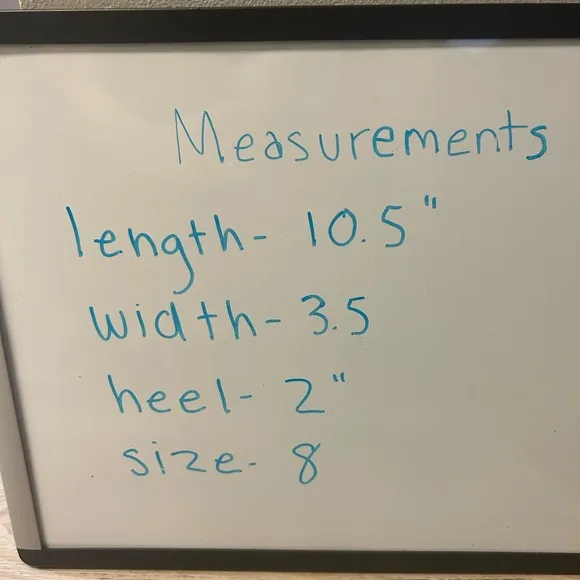 Measurements
length- 10.5"
width- 3.5
heel- 2"
size- 8